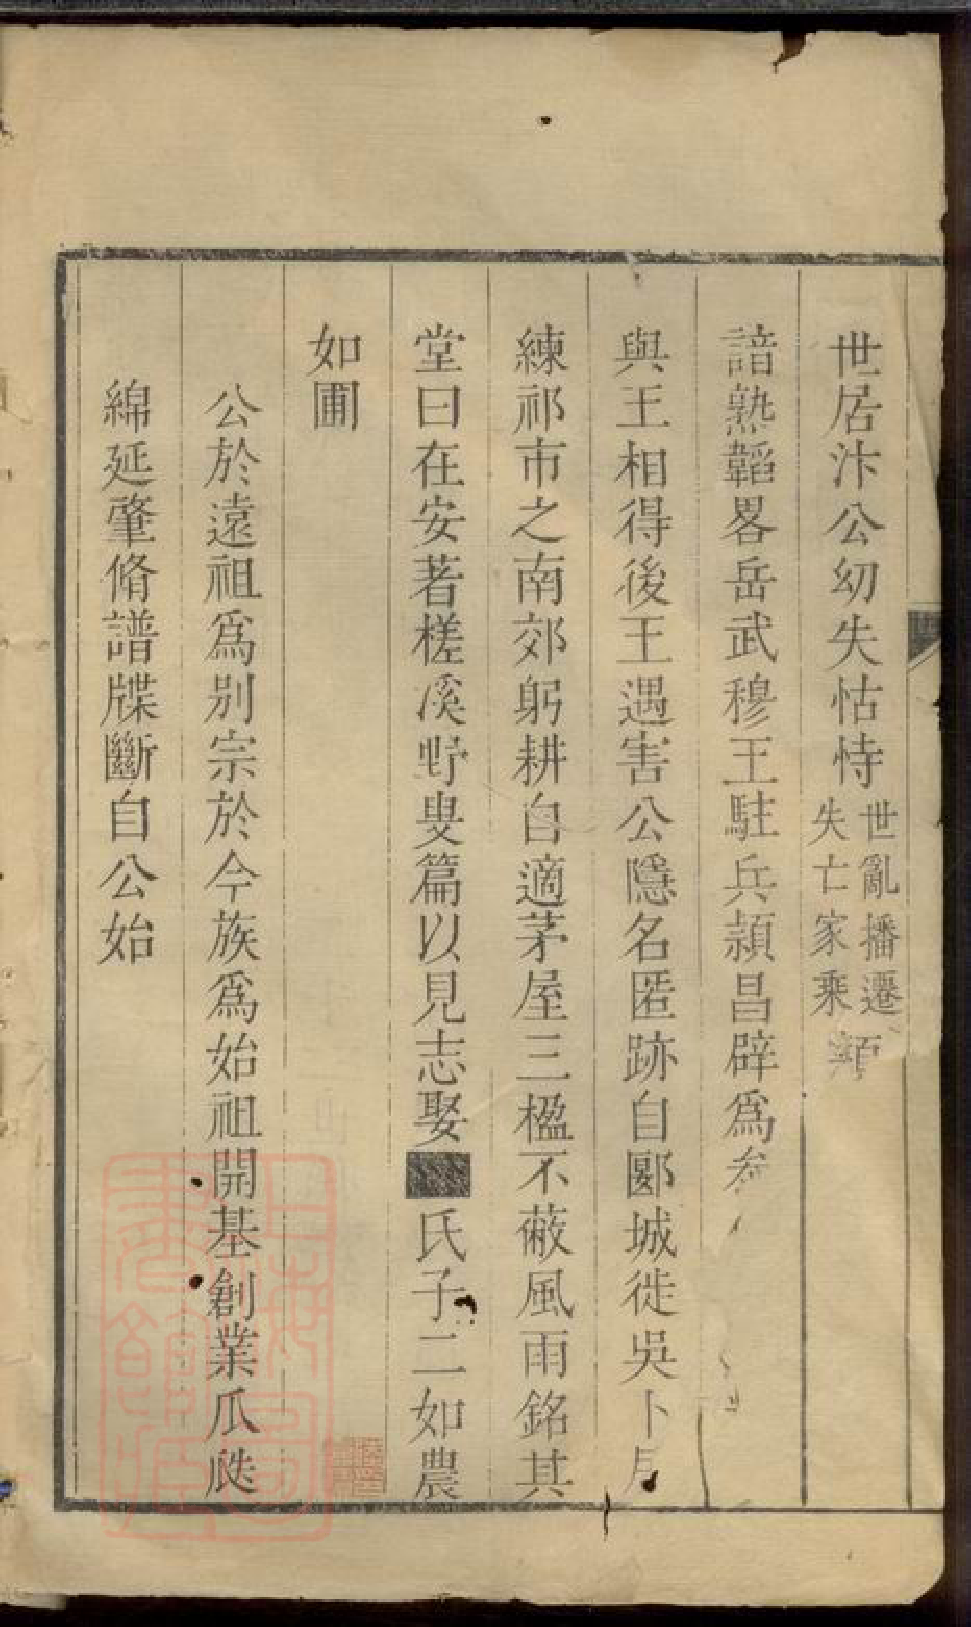 世居汴公幼失怙恃世亂播遷失亡家乘穎
諳熟韜畧岳武穆王駐兵潁昌辟爲參
與王相得後王遇害公隱名匿跡自郾城徙吳卜居
練祁市之南郊躬耕自適茅屋三楹不蔽風雨銘其
堂曰在安著槎溪野叟篇以見志娶氏子二如農
如圃
公於遠祖爲別宗於今族爲始祖開基創業瓜瓞
綿延肇脩譜牒斷自公始
上海圖書館藏